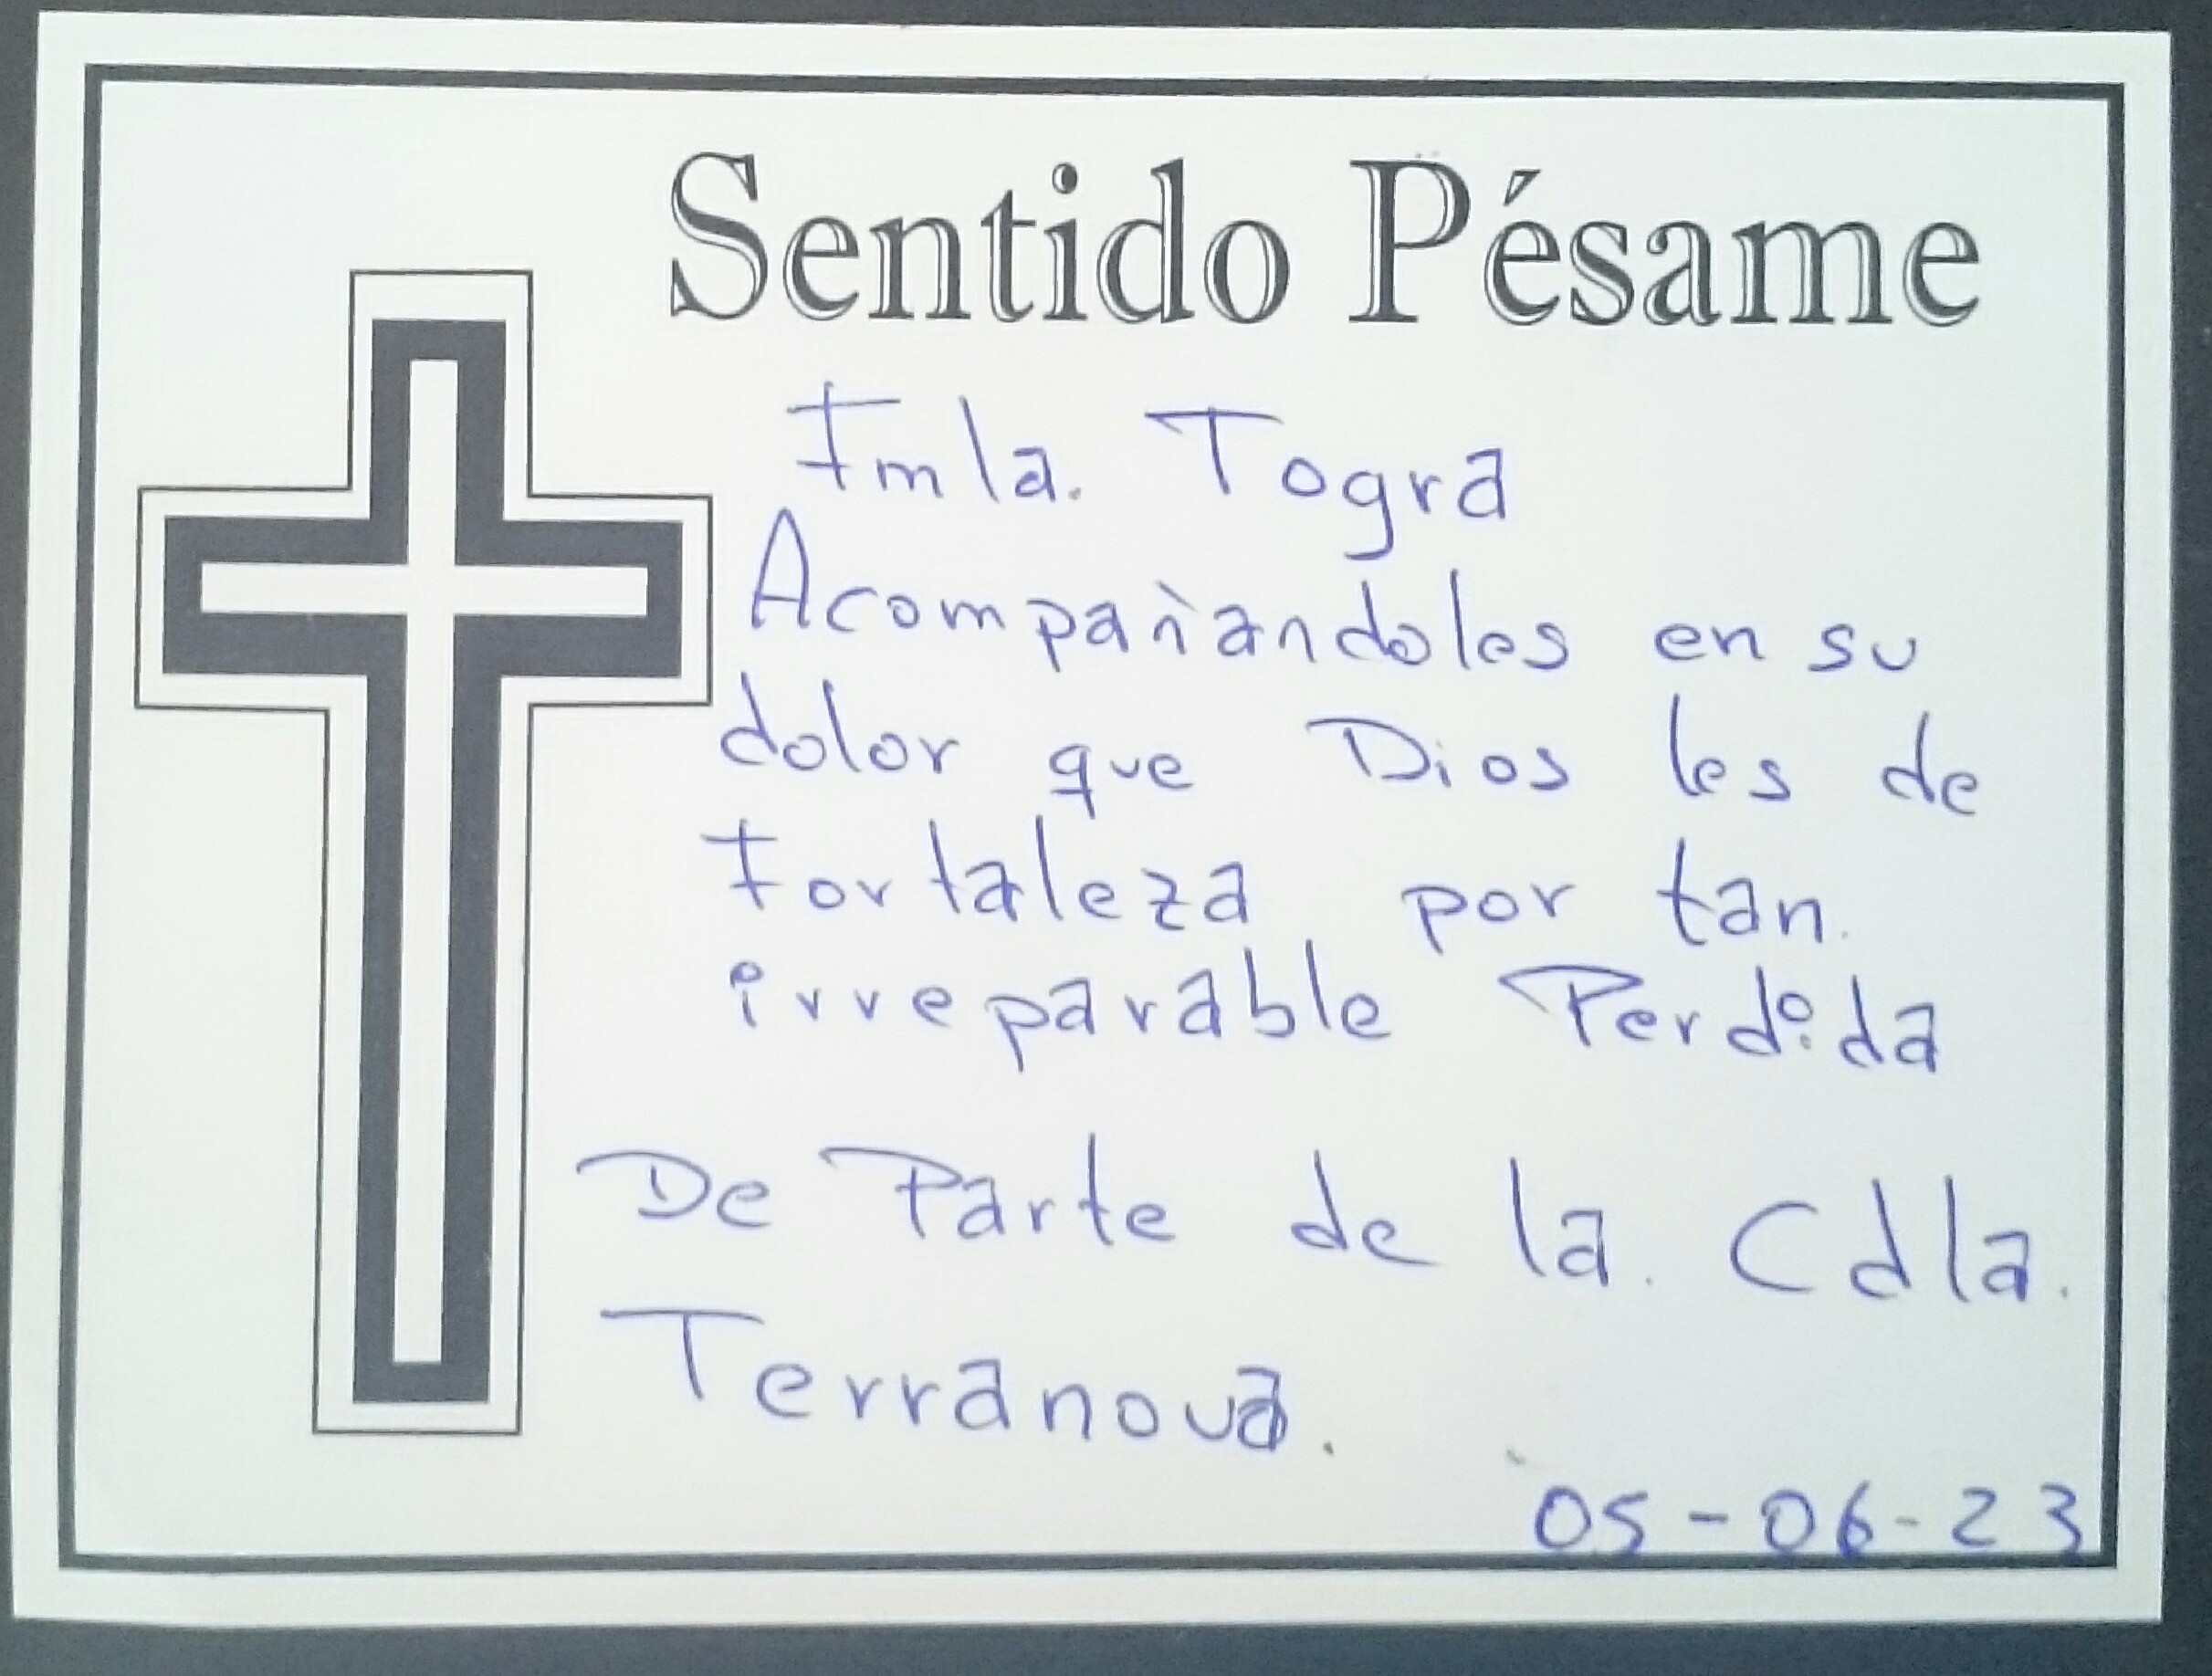 Sentido Pésame
Fmla. Togra
Acompañandoles en su
dolor que Dios les de
Fortaleza por tan.
irreparable Perdida
De Parte de la. Cdla.
Terranova.
05-06-23